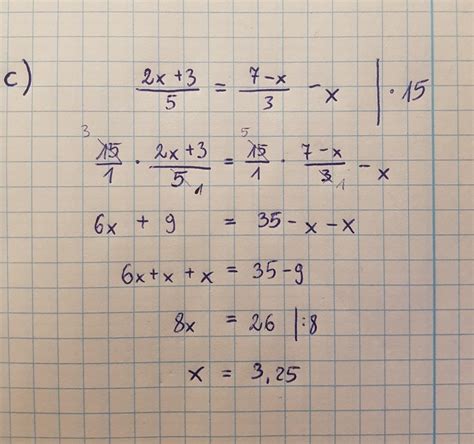 c) (2x+3)/5 = (7-x)/3 - x | · 15
3 15/1 · (2x+3)/5 1 = 5 15/1 · (7-x)/3 1 - x
6x + 9 = 35 - x - x
6x + x + x = 35 - 9
8x = 26 | :8
x = 3,25